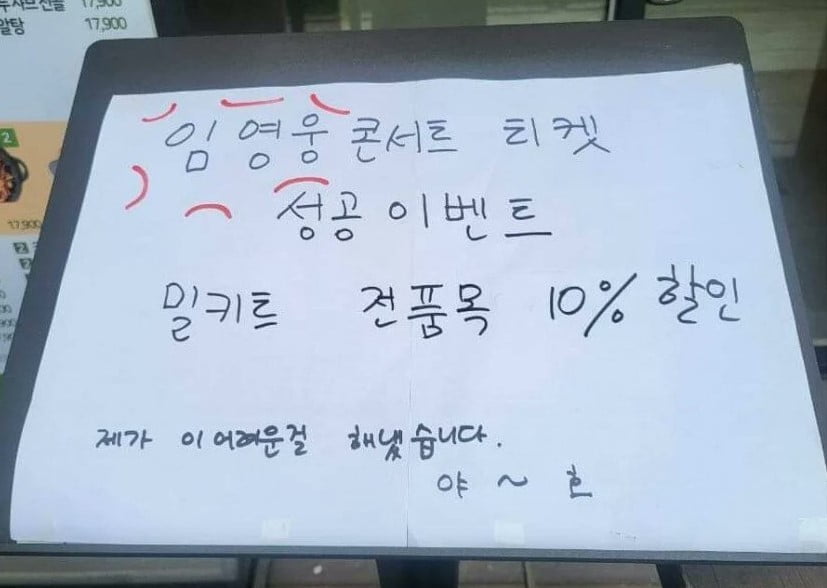 17,900
알탕 17,900
임영웅 콘서트 티켓
성공이벤트
밀키트 전품목 10% 할인
제가 이어려운걸 해냈습니다.
야~호
2
17,900
2
2